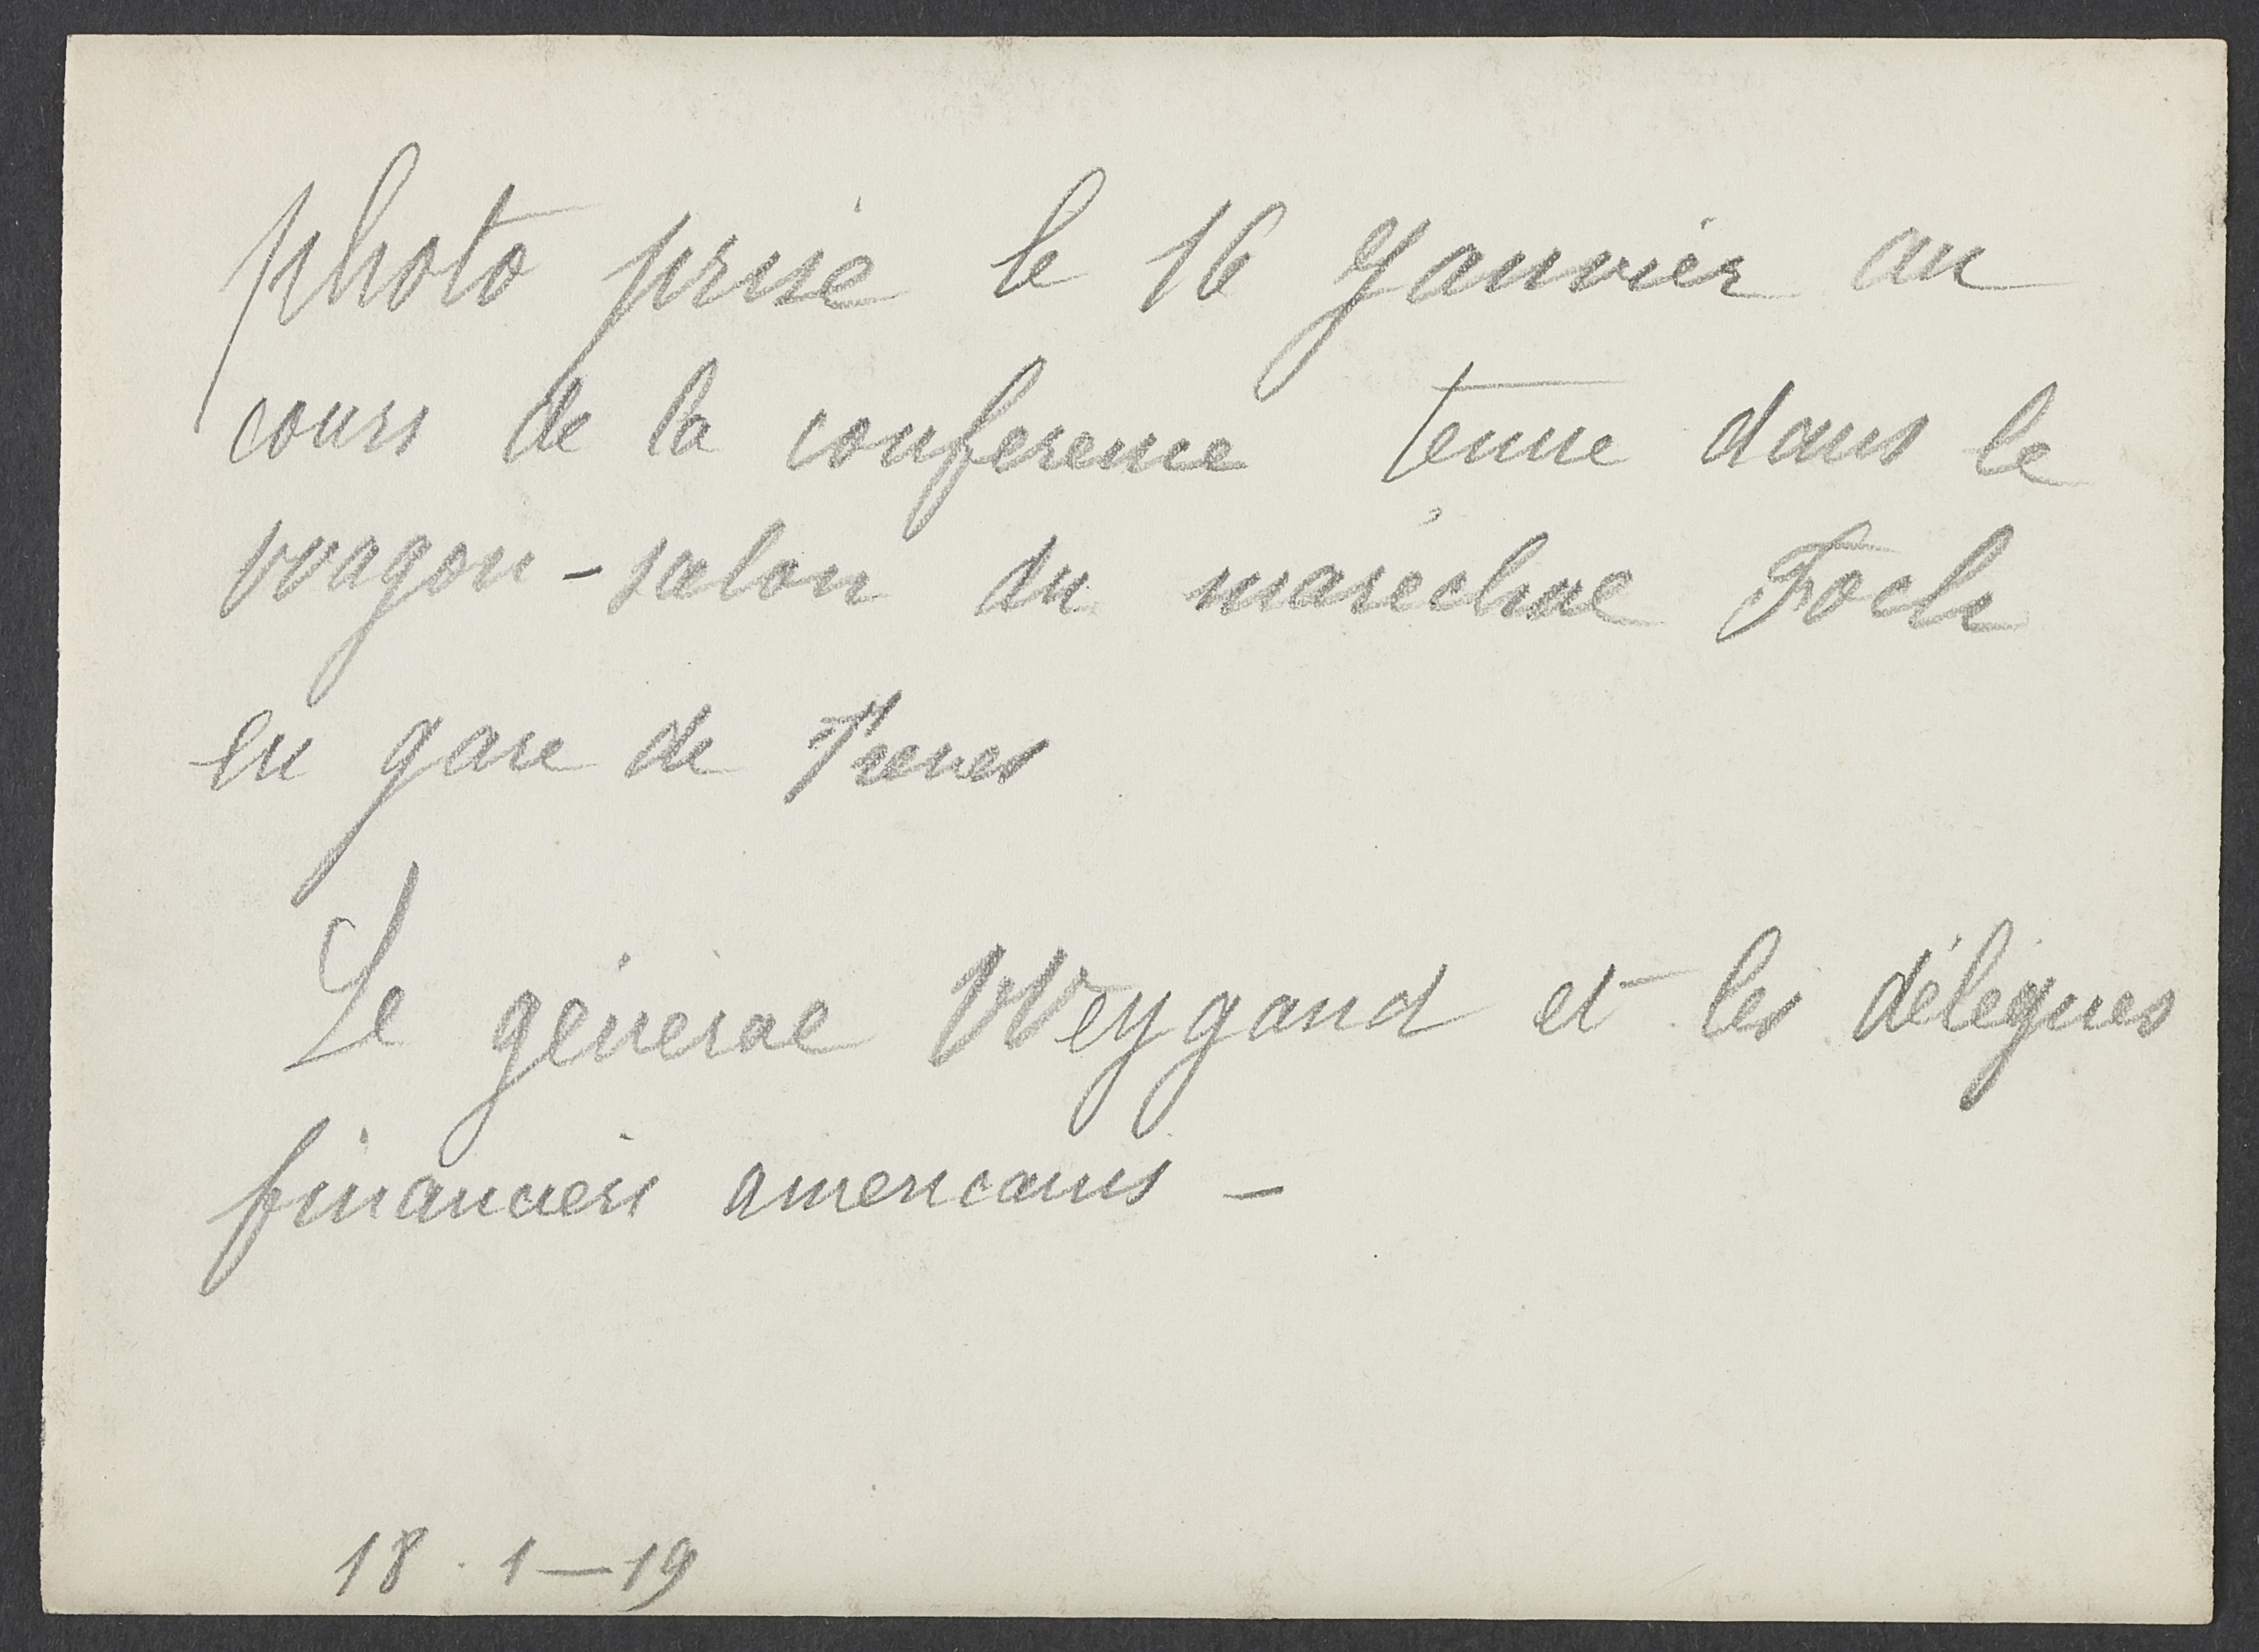 photo prise le 16 Janvier au
cours de la conference tenue dans le
wagon-salon du maréchal Foch
en gare de Treves
Le général Weygand et les délégués
financiers americains -
18.1-19